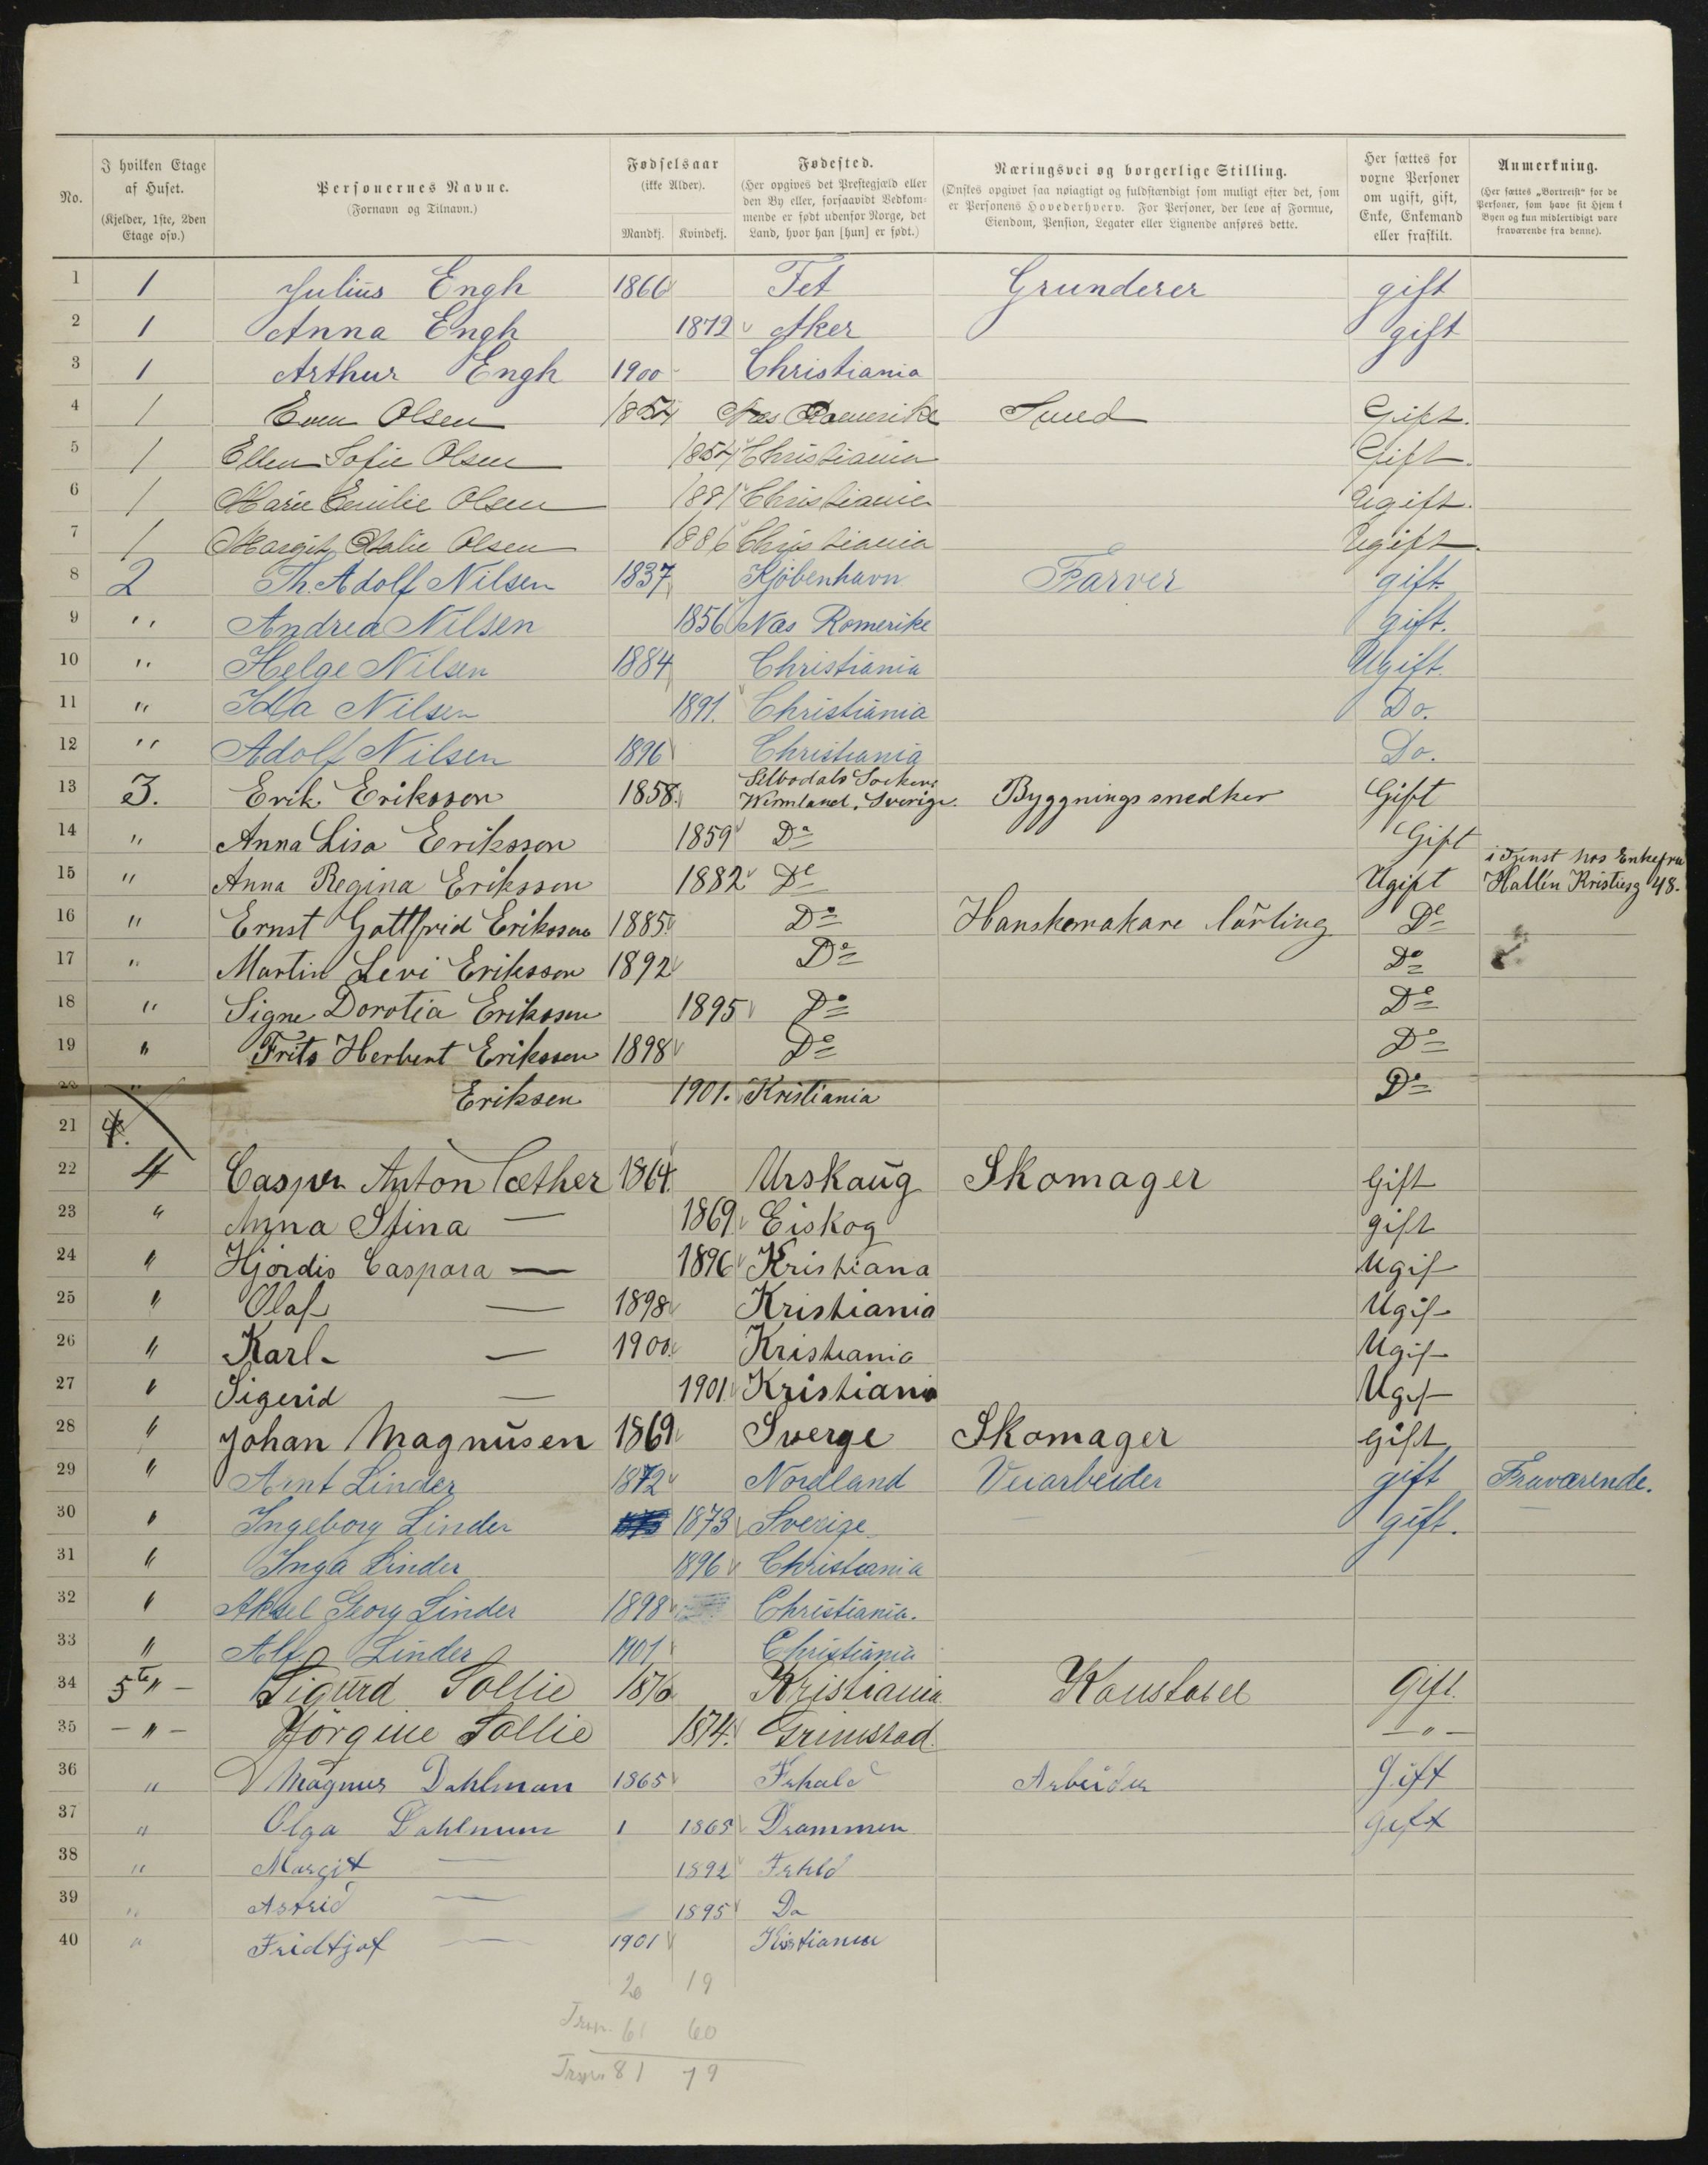 No. I hvilken Etage af Huset. (Kjelder, 1ste, 2den Etage osv.) Personernes Navne. (Fornavn og Tilnavn.) Fødselsaar (ikke Alder). Mandkj. Kvindekj. Fødested. (Her opgives det Prestegjæld eller den By eller, forsaavidt Vedkommende er født udenfor Norge, det Land, hvor han [hun] er født.) Næringsvei og borgerlige Stilling. (Ønskes opgivet saa nøiagtigt og fuldstændigt som muligt efter det, som er Personens Hovederhverv. For Personer, der leve af Formue, Eiendom, Pension, Legater eller Lignende anføres dette. Her sættes for voxne Personer om ugift, gift, Enke, Enkemand eller fraskilt. Anmerkning. (Her sættes „Bortreist“ for de Personer, som have sit Hjem i Byen og kun midlertidigt vare fraværende fra denne).
1 1 Julius Engh 1866 Fet Grunderer gift
2 1 Anna Engh 1872 Aker gift
3 1 Arthur Engh 1900 Christiania
4 1 Even Olsen 1854 Næs Romerike Smed Gift.
5 1 Ellen Sofie Olsen 1854 Christiania Gift.
6 1 Marie Emilie Olsen 1881 Christiania Ugift.
7 1 Margit Olsen 1886 Christiania Ugift.
8 2 Th. Adolf Nilsen 1837 Kjöbenhavn Farver gift.
9 " Andrea Nilsen 1856 Næs Romerike gift.
10 " Helge Nilsen 1884 Christiania Ugift.
11 " Ida Nilsen 1891. Christiania Do.
12 " Adolf Nilsen 1896 Christiania Do.
13 3. Erik Eriksson 1858. Silbodals Socken Wermland, Sverige. Byggnings snedker Gift
14 " Anna Lisa Eriksson 1859 Do Gift
15 " Anna Regina Eriksson 1882 Do Ugift i Tjenst hos Enkefru Hallén Kristiesg 48.
16 " Ernst Gottfrid Eriksson 1885 Do Hanskemakare lärling Do
17 " Martin Levi Eriksson 1892 Do Do
18 " Signe Dorotia Eriksson 1895 Do Do
19 " Frits Herbert Eriksson 1898 Do Do
20 " Eriksen 1901. Kristiania Do
21 4.
22 4 Casper Anton Sæther 1864 Urskaug Skomager Gift
23 " Anna Stina — 1869 Eiskog gift
24 " Hjørdis Caspara — 1896 Kristiana Ugif
25 " Olaf — 1898 Kristiania Ugif
26 " Karl — 1900 Kristiania Ugif
27 " Sigerid — 1901 Kristiania Ugif
28 " Johan Magnusen 1869 Sverge Skomager gift
29 " Arnt Linder 1872 Nordland Veiarbeider gift Fraværende.
30 " Ingeborg Linder 1873 Sverige gift.
31 " Inga Linder 1896 Christiania
32 " Aksel Georg Linder 1898 Christiania.
33 " Alf Linder 1901 Christiania
34 5te " — Sigurd Sollie 1876 Kristiania Konstabel Gift.
35 — " — Jörgine Sollie 1874. Grimstad — " —
36 " Magnus Dahlman 1865 Frhald Arbeider Gift
37 " Olga Dahlman 1 1865 Drammen gift
38 " Margit — 1892 Frhld
39 " Astrid — 1895 Do
40 " Fridtjof — 1901 Kristiania
20 19
Trsp. 61 60
Trsp. 81 79